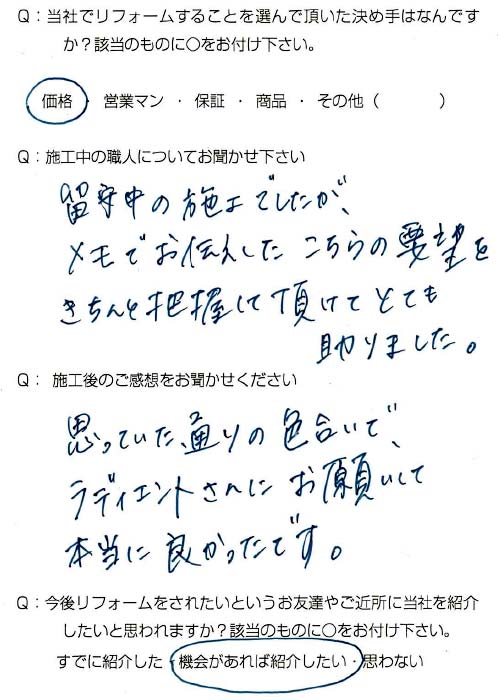 Q：当社でリフォームすることを選んで頂いた決め手はなんです
か？該当のものに○をお付け下さい。
価格・営業マン・保証・商品・その他（　　　）
Q：施工中の職人についてお聞かせ下さい
留守中の施工でしたが、
メモでお伝えした こちらの要望を
きちんと把握して頂けてとても
助かりました。
Q： 施工後のご感想をお聞かせください
思っていた通りの色合いで、
ラディエントさんにお願いして
本当に良かったです。
Q：今後リフォームをされたいというお友達やご近所に当社を紹介
したいと思われますか？該当のものに○をお付け下さい。
すでに紹介した・機会があれば紹介したい・思わない